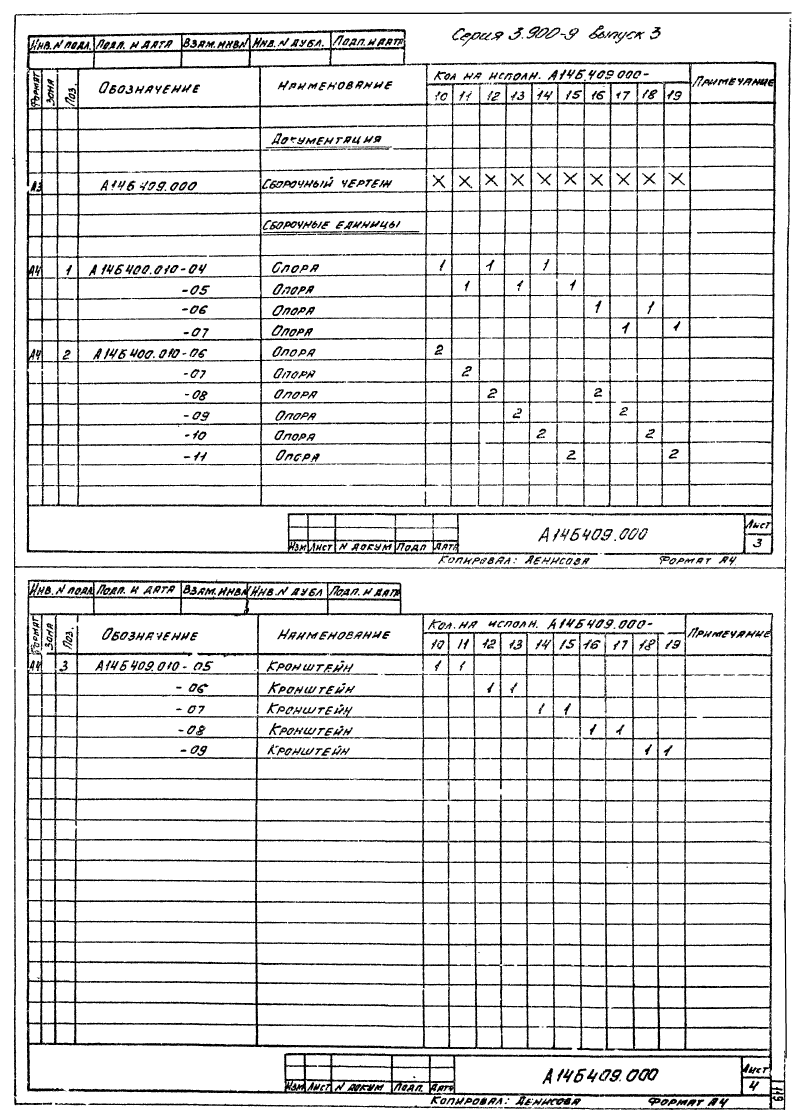 Серия 3.900-9 выпуск 3
Инв. N подл. Подп. и дата Взам. инв. N Инв. N дубл. Подп. и дата
Формат Зона Поз. Обозначение Наименование Кол на исполн. А14Б409.000- Примечание
10 11 12 13 14 15 16 17 18 19
Документация
А3 А14Б409.000 Сборочный чертеж X X X X X X X X X X
Сборочные единицы
А4 1 А14Б400.010-04 Опора 1 1 1
-05 Опора 1 1 1
-06 Опора 1 1
-07 Опора 1 1
А4 2 А14Б400.010-06 Опора 2
-07 Опора 2
-08 Опора 2 2
-09 Опора 2 2
-10 Опора 2 2
-11 Опора 2 2
Изм Лист N докум Подп Дата А14Б409.000 Лист 3
Копировал: Денисова Формат А4
Инв. N подл. Подп. и дата Взам. инв. N Инв. N дубл Подп. и дата
Формат Зона Поз. Обозначение Наименование Кол. на исполн. А14Б409.000- Примечание
10 11 12 13 14 15 16 17 18 19
А4 3 А14Б409.010-05 Кронштейн 1 1
-06 Кронштейн 1 1
-07 Кронштейн 1 1
-08 Кронштейн 1 1
-09 Кронштейн 1 1
Изм Лист N докум Подп. Дата А14Б409.000 Лист 4
Копировал: Денисова Формат А4